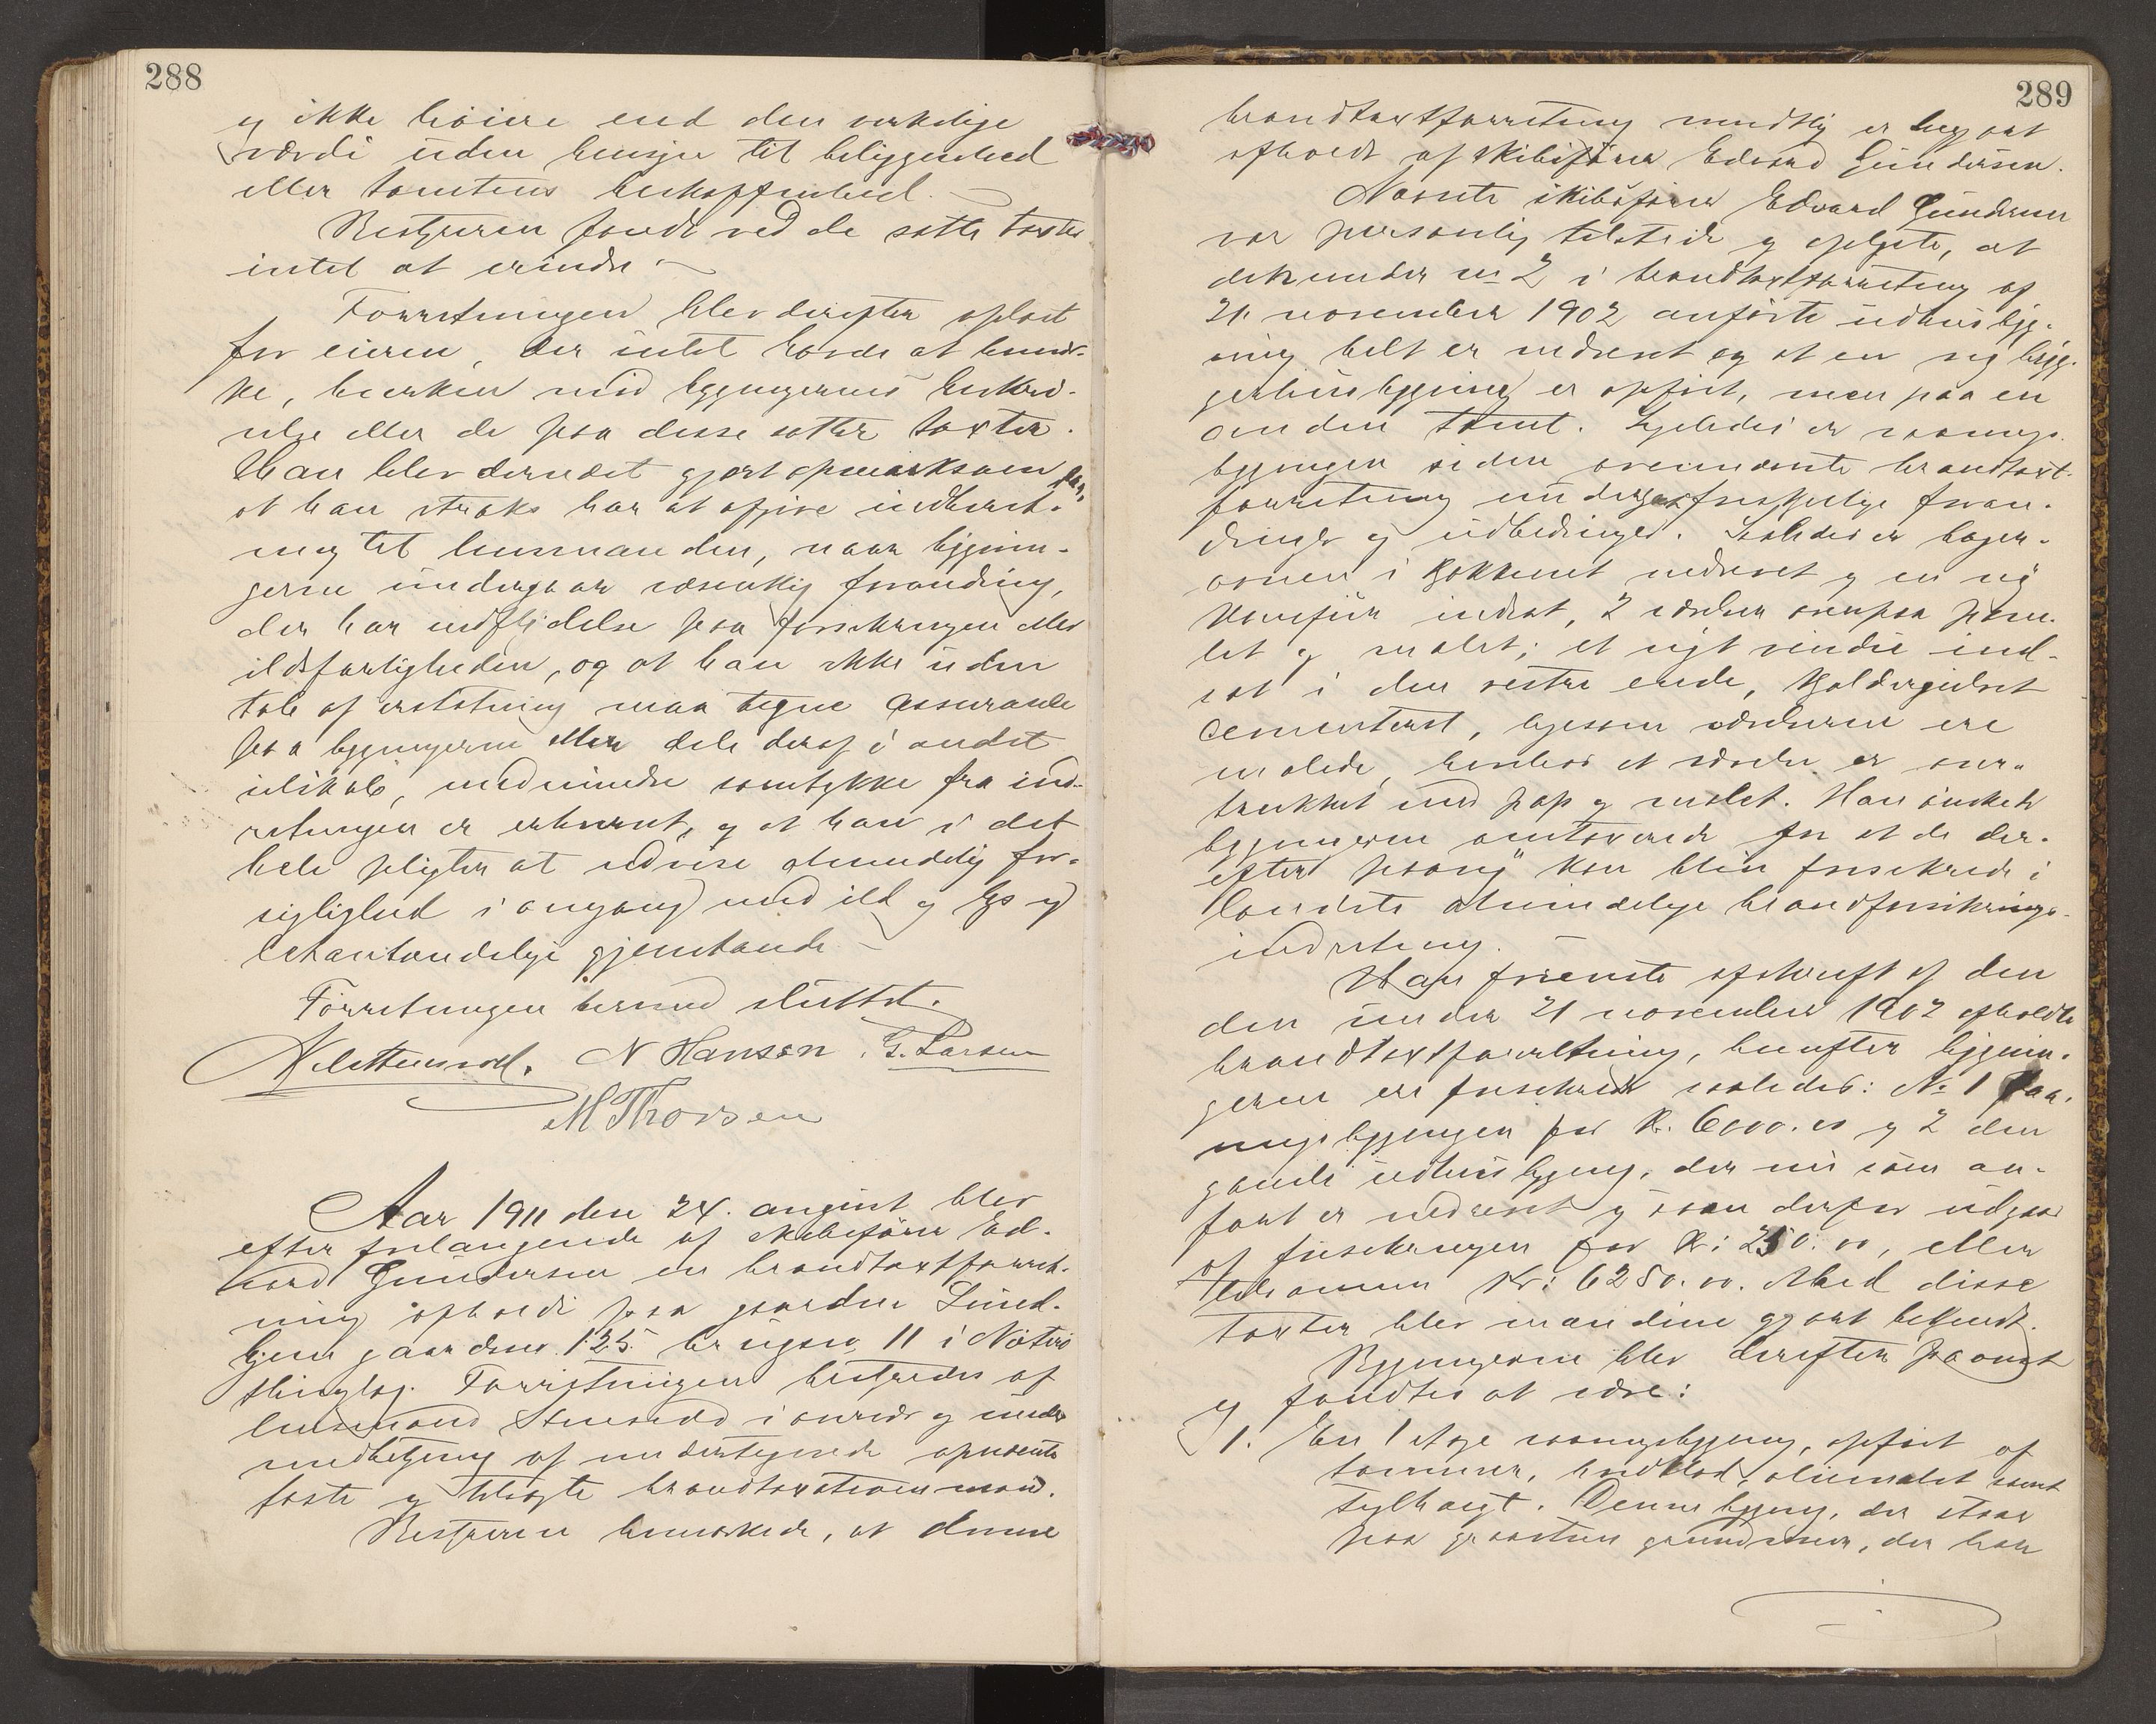 288
og ikke høiere end den verkelige
værdi uden hensyn til beliggenhed
eller tomtens beskaffenhed.
Bestyreren fandt ved de satte taxter
intet at erindre.
Forretningen blev derefter oplæst
for eieren, der intet havde at bemær-
ke, hverken mod bygningernes beskriv-
else eller de paa disse satte taxter.
Han blev dernæst gjort opmærksom paa,
at han straks har at afgive indberet-
ning til lensmanden, naar bygnin-
gerne undergaar væsentlig forandring,
der har indflydelse paa forsikringen eller
ildsfarligheden, og at han ikke uden
tab af erstatning maa tegne assurance
paa bygningerne eller dele deraf i andet
selskab, medmindre samtykke fra ind-
retningen er erhvervet, og at han i det
hele pligter at udvise almindelig for-
sigtighed i omgang med ild og lys og
letantændelige gjenstande
Forretningen hermed sluttet.
N Hansen. G. Larsen
M Thorsen
Aar 1911 den 24. august blev
efter forlangende af skibsfører Ed-
vard Gundersen en brandtaxtforret-
ning afholdt paa gaarden Lind-
gaardsno 125 brugsno 11 i Nøtterø
thinglag. Forretningen bestyredes af
lensmand i overvær og under
medbetjening af undertegnede opnævnte
faste og edsvorne brandtaxationsmænd.
Bestyreren bemærkede, at denne
289
brandtaxtforretning mundtlig er begjært
afholdt af skibsfører Edvard Gundersen.
Nævnte skibsfører Edvard Gundersen
var personlig tilstede og oplyste, at
den under no 2 i brandtaxtforretning af
21. november 1902 anførte udhusbyg-
ning helt er nedrevet og at en ny bryg-
gerhusbygning er opført, men paa en
anden tomt. Ligeledes er vaanings-
bygningen siden ovennævnte brandtaxt-
forretning undergaat forskjellige foran-
dringer og udbedringer. Saaledes er bager-
ovnen i kjøkkenet nedrevet og en ny
komfur indsat, 2 værelser ovenpaa pane-
let og malet; et nyt vindu ind-
sat i den vestre ende, kjældergulvet
cementeret, ligesom værelserne ere
malede, henholdsvis et værelse er over-
trukket med pap og malet. Han ønskede
bygningerne omtaxerede for at de der-
efter paany kan blive forsikrede i
landets almindelige brandforsikrings-
indretning.
Han foreviste afskrift af den
den under 21 november 1902 afholdte
brandtaxtforretning, hvorefter bygnin-
gerne ere forsikrede saaledes: No 1 Vaa-
ningsbygningen for Kr. 6000.00 og 2 den
gamle udhusbygning, der nu som an-
ført er nedrevet og som derfor udgaar
af forsikringen for Kr: 250.00, eller
tilsammen Kr: 6250.00. Med disse
taxter blev mændene gjort bekendt.
Bygningerne blev derefter paavist
og fandtes at være:
1. En 1 etage vaaningsbygning, opført af
tømmer, bordklæd, oliemalet samt
teglhængt. Denne bygning, der staar
paa graastens grundmur, der har